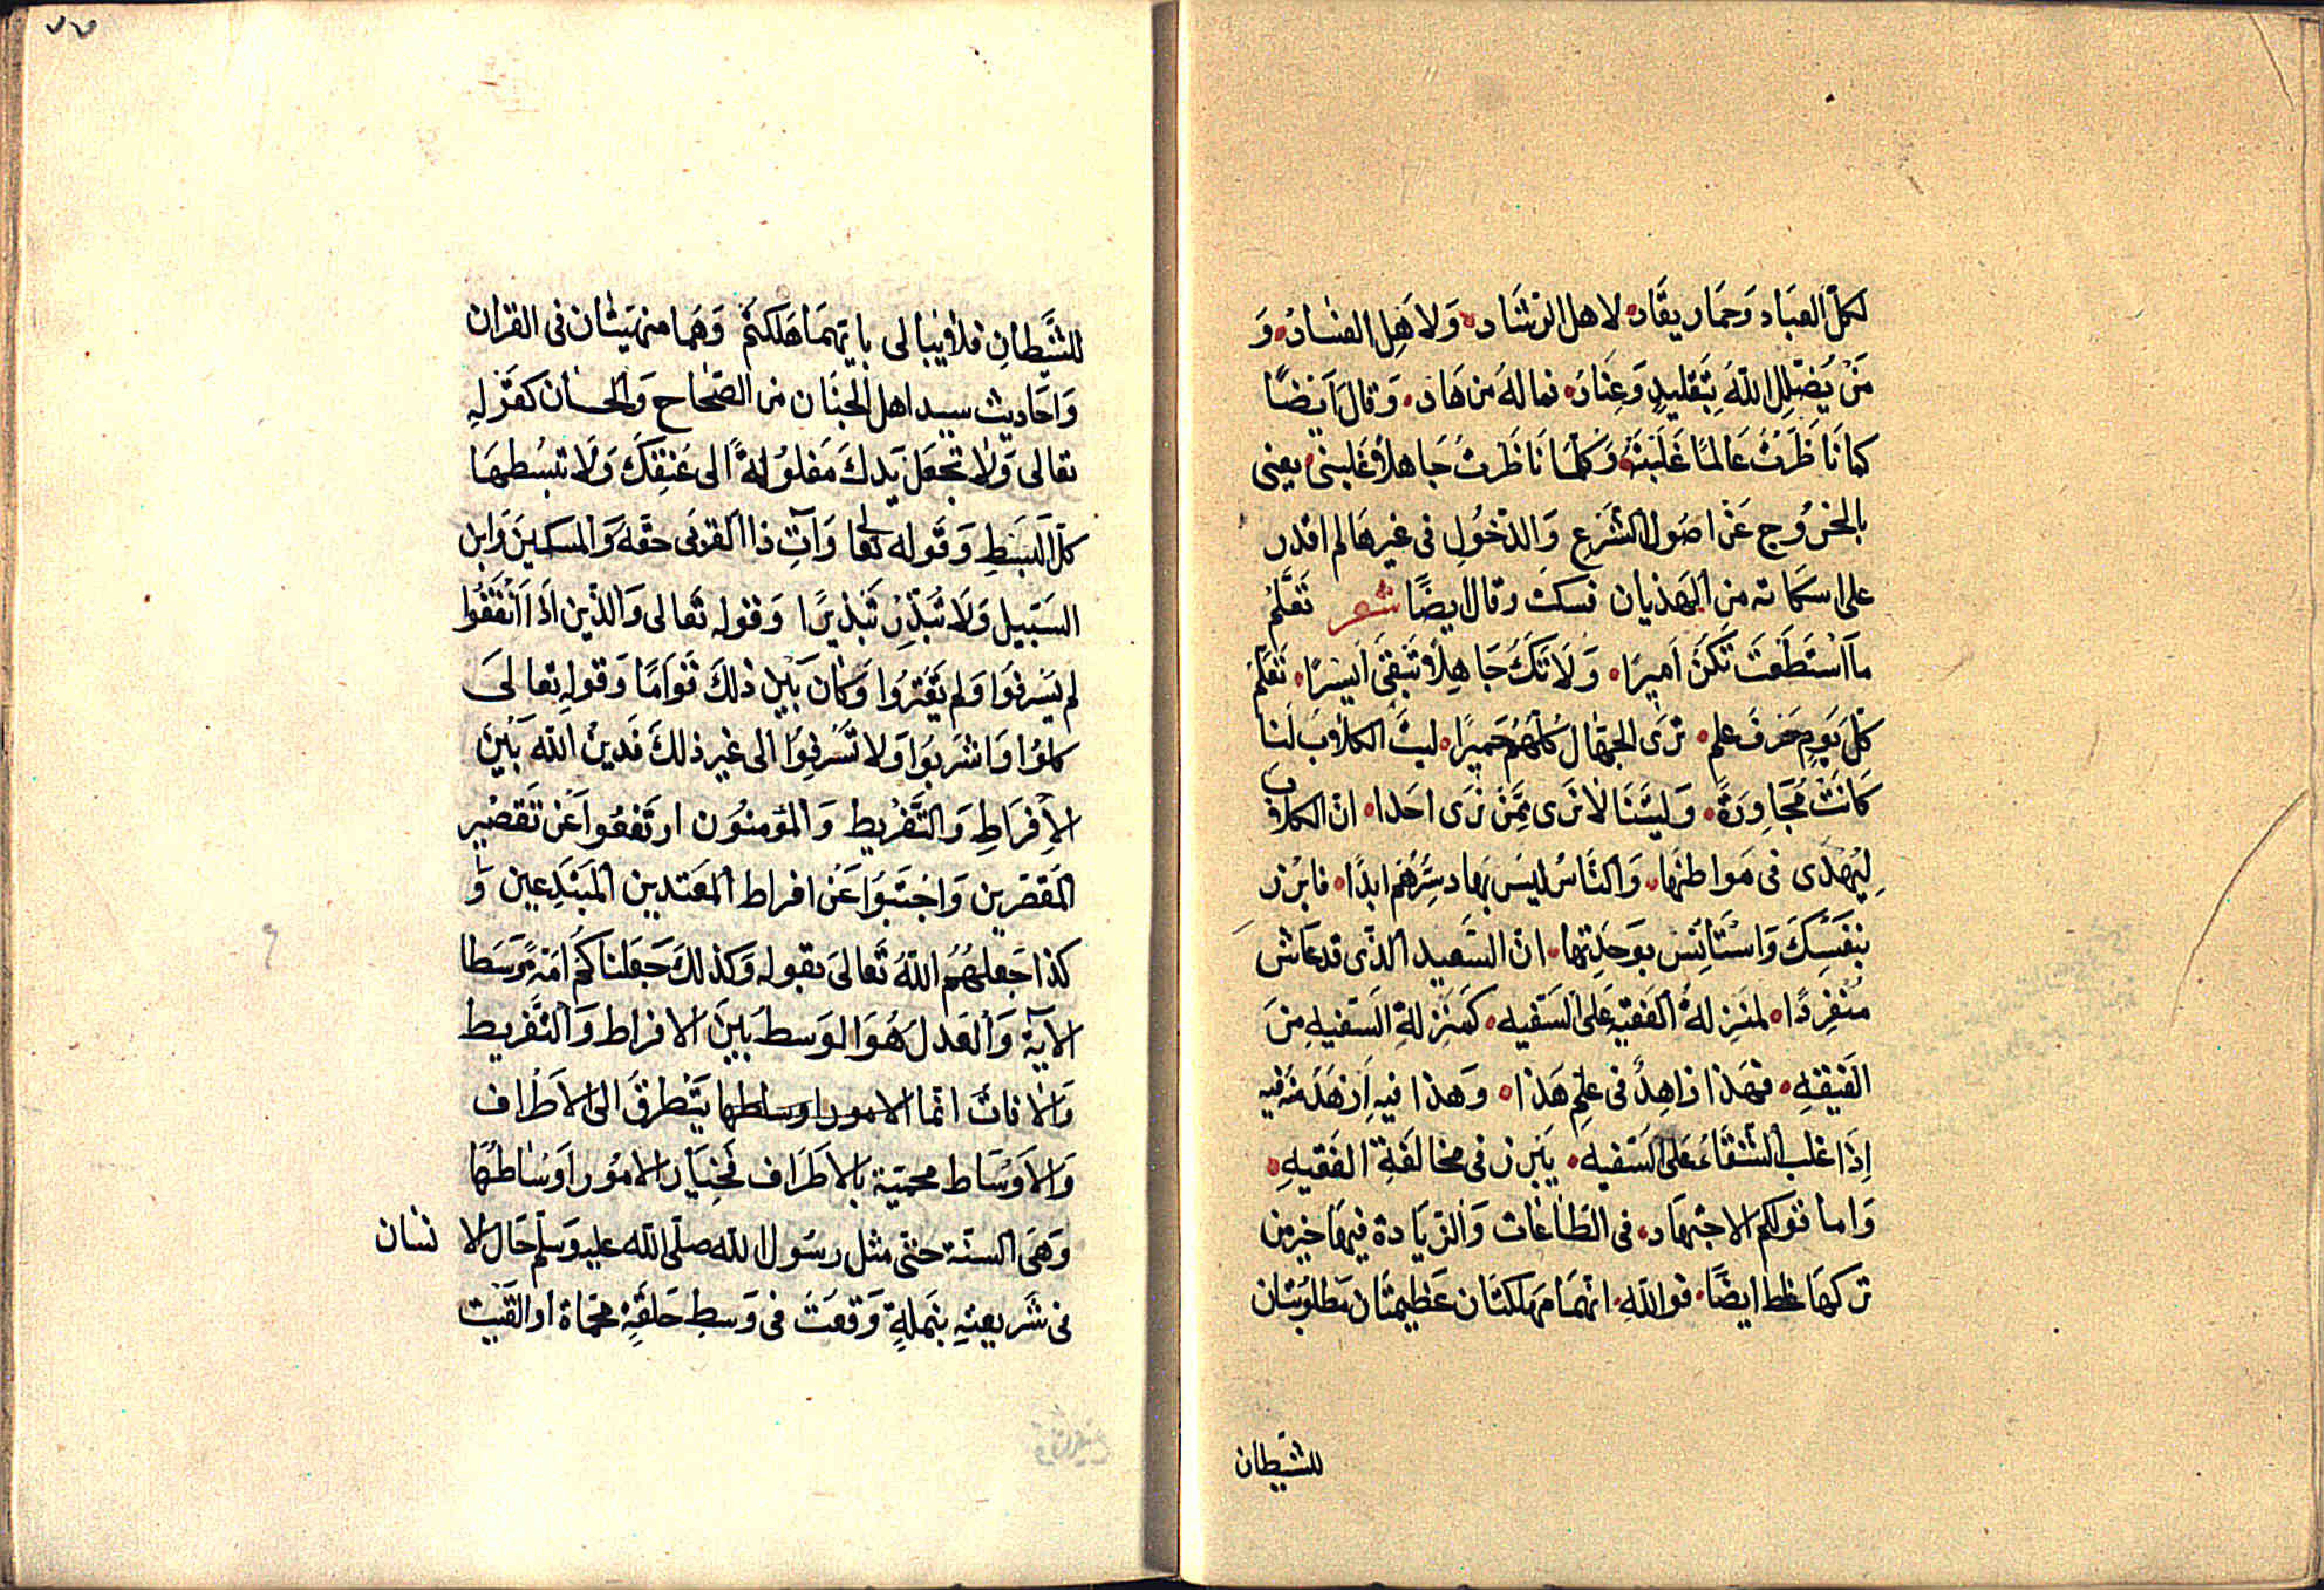 لكلّ العبَاد وَحمَار يقَاد لاهل الرشَاد وَلاهِل الفسَاد وَ
مَنْ يُضلِل اللّٰهُ بِتَقليدٍ وَعِنَاد فما لهُ من هَاد وَقالَ اَيضًا
كما نَاظَرتُ عَالمًا غَلَبتَهُ وَكلّمَا نَاظَرتُ جَاهلاً غَلبنى يعنى
بالخرُوج عَن اصُول الشَرع وَالدّخُولِ فى غيرهَا لم اقدر
على اسكاته مِن الهَذيان فسكت وقال ايضًا شعر تَعَلّمْ
مَا اَستَطَعَتَ تكَنْ اَميرَا وَلَا تَكُ جَاهِلاً تَبقى اَسِيرًا تَعَلّمْ
كلّ يَومٍ حَرفَ علمٍ ترَى الجهّال كلّهُم حَميرًا ليتَ الكلاب لنا
كَانَتْ مُجَاوِرَةً وَليتَنَا لا نَرى مِمَّنْ نَرَى احَدا انّ الكلاب
لِيُهْدَى فى مَواطنهَا وَالنّاسُ ليسَ بهاد شَرّهُم ابدًا فابرُز
بنَفسِكَ وَاستَانِس بوَحدِتها انّ السَعيد الذّى قد عَاشَ
مُنفرِدًا لمنَزِلةُ الفَقيهِ عَلى السَفيه كَمنَزِلةِ السَفيهِ مِنَ
الفَقيهِ فهَذا زاهِدٌ فى عِلِم هَذا وَهذا فيهِ اَزهَدَ منهُ فيه
اِذا غلب الشقَاءُ عَلى السَفيه يَبرز فى مخالفَةِ الفَقيهِ
وَاما قولكم الاجتهَاد فى الطّاعَات وَالزيَادة فيهَا خير من
تركهَا غلط ايضًا فوَاللّٰهِ انهمَا مهلكتَان عَظيمتَان مَطلوبتَان
للشّيطان
للشَّيطانِ فلا يُبالى بايّهمَا هَلكتم وَهُما منهيّتان فى القران
وَاحَاديث سيد اهل الجنَان من الصّحَاح وَالحسان كقَولِهِ
تعالى وَلَا تجعَل يَدكَ مَغلوُلةً الى عُنقِكَ وَلَا تبسُطهَا
كلّ البسَطِ وَقوله تعالى وَآتِ ذا القربى حقّهُ وَالمسكينَ وَابن
السَبيل وَلَا تُبَذّرْ تَبذيرًا وَقوله تَعالى وَالذّين اذَا اَنفَقُوا
لم يُسرفوُا وَلم يَقترُوا وَكان بَين ذلكَ قَوَامًا وَقولهِ تعالىَ
كلوُا وَاشربوُا وَلا تسُرفوُا الى غير ذلكَ فدين اللّٰه بَينَ
الاِفرَاطِ وَالتَّفرْيط وَالمؤمنوُن ارتَفعُوا عَن تَقصْير
المُقصّرين وَاجتَنبوُا عَن افراط المعتدين المُبتدِعين وَ
كذا جَعلهُم اللّٰهُ تعالىَ بقوله وَكذلكَ جَعَلناكم امّةً وَسَطا
الآية وَالعَدل هُوَ الوَسط بَينَ الافراط وَالتّفريط
وَالافات انما الامور اوساطها يَتَطرقُ الى الاطرَاف
وَالاَوسَاط محميّة بالاطَرَاف فَخيَار الامُور اَوسَاطهَا
وَهَى السنّة حتّى مثل رسُول اللّٰه صلّى اللّٰه عليه وَسلّم حَال الانسَان
فى شَريعتِهِ بنَملةٍ وَقعَتْ فى وَسطِ حَلقَةٍ محمَاة اوالقيَت